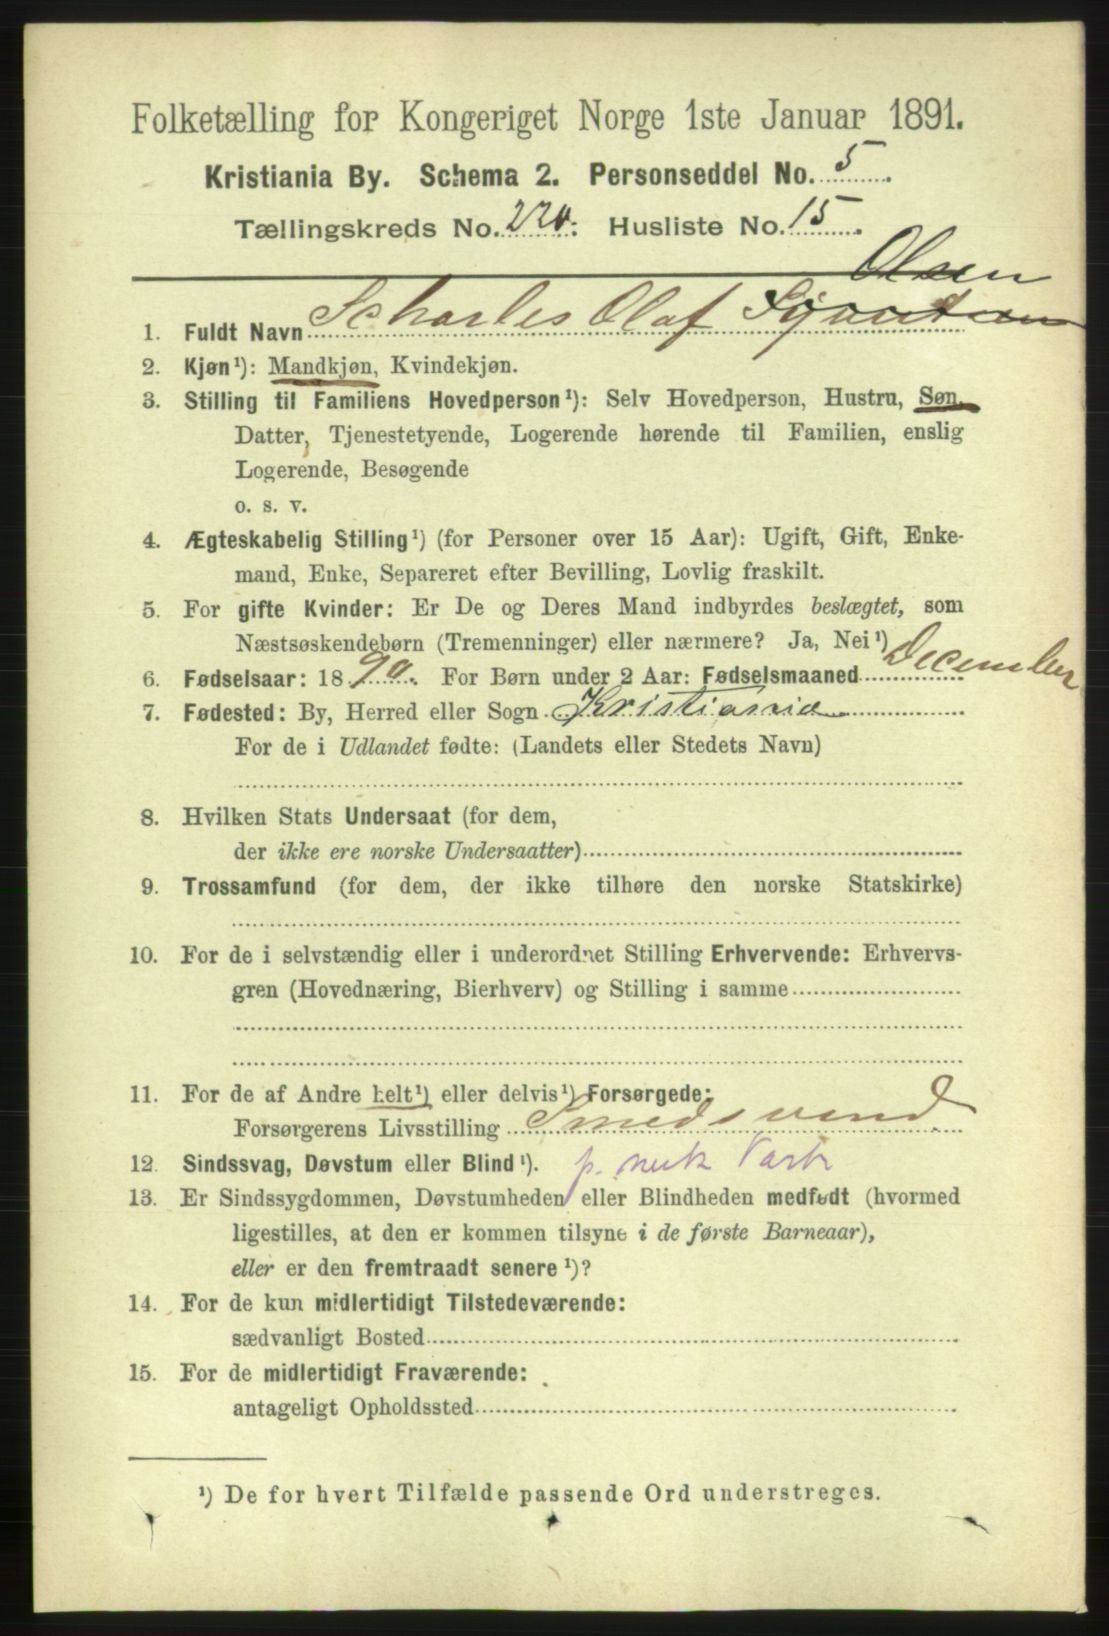 Folketælling for Kongeriget Norge 1ste Januar 1891.
Kristiania By. Schema 2. Personseddel No. 5.
Tællingskreds No. 220. Husliste No. 15.
Olsen
1. Fuldt Navn Scharles Olaf
2. Kjøn¹): Mandkjøn, Kvindekjøn.
3. Stilling til Familiens Hovedperson¹): Selv Hovedperson, Hustru, Søn,
Datter, Tjenestetyende, Logerende hørende til Familien, enslig
Logerende, Besøgende
o. s. v.
4. Ægteskabelig Stilling¹) (for Personer over 15 Aar): Ugift, Gift, Enke-
mand, Enke, Separeret efter Bevilling, Lovlig fraskilt.
5. For gifte Kvinder: Er De og Deres Mand indbyrdes beslægtet, som
Næstsøskendebørn (Tremenninger) eller nærmere? Ja, Nei¹)
6. Fødselsaar: 1890. For Børn under 2 Aar: Fødselsmaaned December
7. Fødested: By, Herred eller Sogn Kristiania
For de i Udlandet fødte: (Landets eller Stedets Navn)
8. Hvilken Stats Undersaat (for dem,
der ikke ere norske Undersaatter)
9. Trossamfund (for dem, der ikke tilhøre den norske Statskirke)
10. For de i selvstændig eller i underordnet Stilling Erhvervende: Erhvervs-
gren (Hovednæring, Bierhverv) og Stilling i samme
11. For de af Andre helt¹) eller delvis¹) Forsørgede:
Forsørgerens Livsstilling Smedsvend
12. Sindssvag, Døvstum eller Blind¹). p. mek Værk
13. Er Sindssygdommen, Døvstumheden eller Blindheden medfødt (hvormed
ligestilles, at den er kommen tilsyne i de første Barneaar),
eller er den fremtraadt senere¹)?
14. For de kun midlertidigt Tilstedeværende:
sædvanligt Bosted
15. For de midlertidigt Fraværende:
antageligt Opholdssted
¹) De for hvert Tilfælde passende Ord understreges.